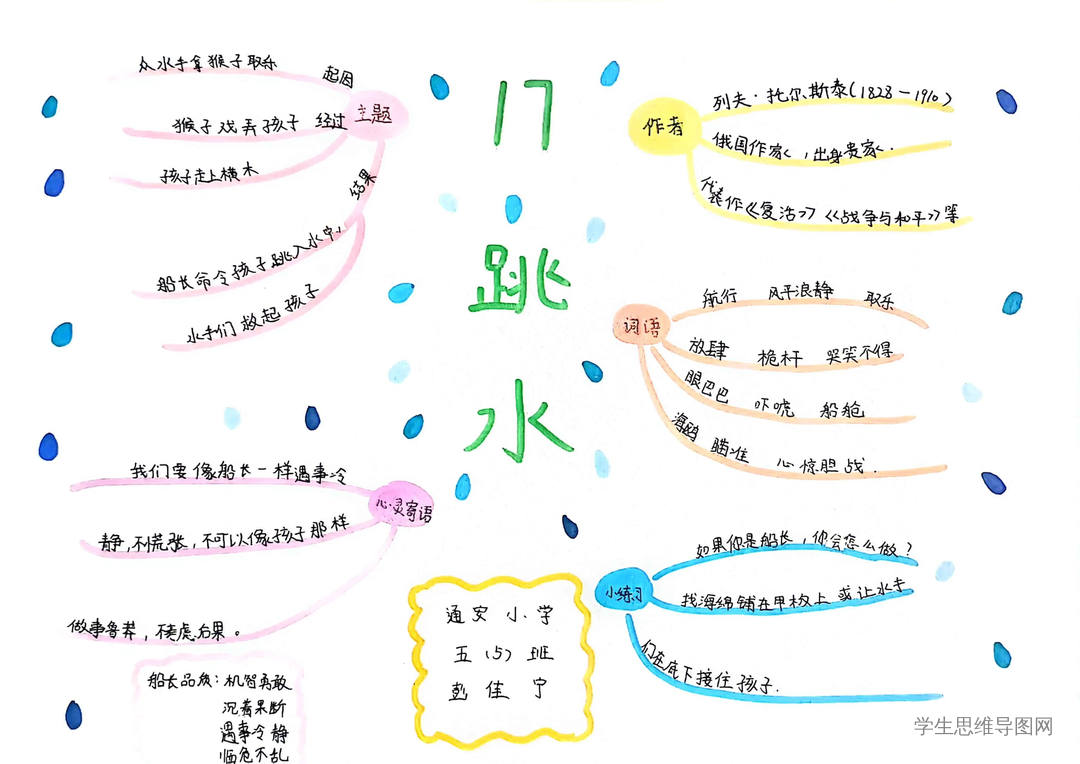 17
跳
水
主题
起因
众水手拿猴子取乐
经过
猴子戏弄孩子
孩子走上横木
结果
船长命令孩子跳入水中。
水手们救起孩子
作者
列夫·托尔斯泰(1828-1910)
俄国作家，出身贵家.
代表作《复活》《战争与和平》等
词语
航行 风平浪静 取乐
放肆 桅杆 哭笑不得
眼巴巴 吓唬 船舱
海鸥 瞄准 心惊胆战.
心灵寄语
我们要像船长一样遇事冷
静,不慌张,不可以像孩子那样
做事鲁莽,不考虑后果。
船长品质:机智勇敢
沉着果断
遇事冷静
临危不乱
通安小学
五(5)班
彭佳宁
小练习
如果你是船长,你会怎么做?
找海绵铺在甲板上或让水手
们在底下接住孩子.
学生思维导图网